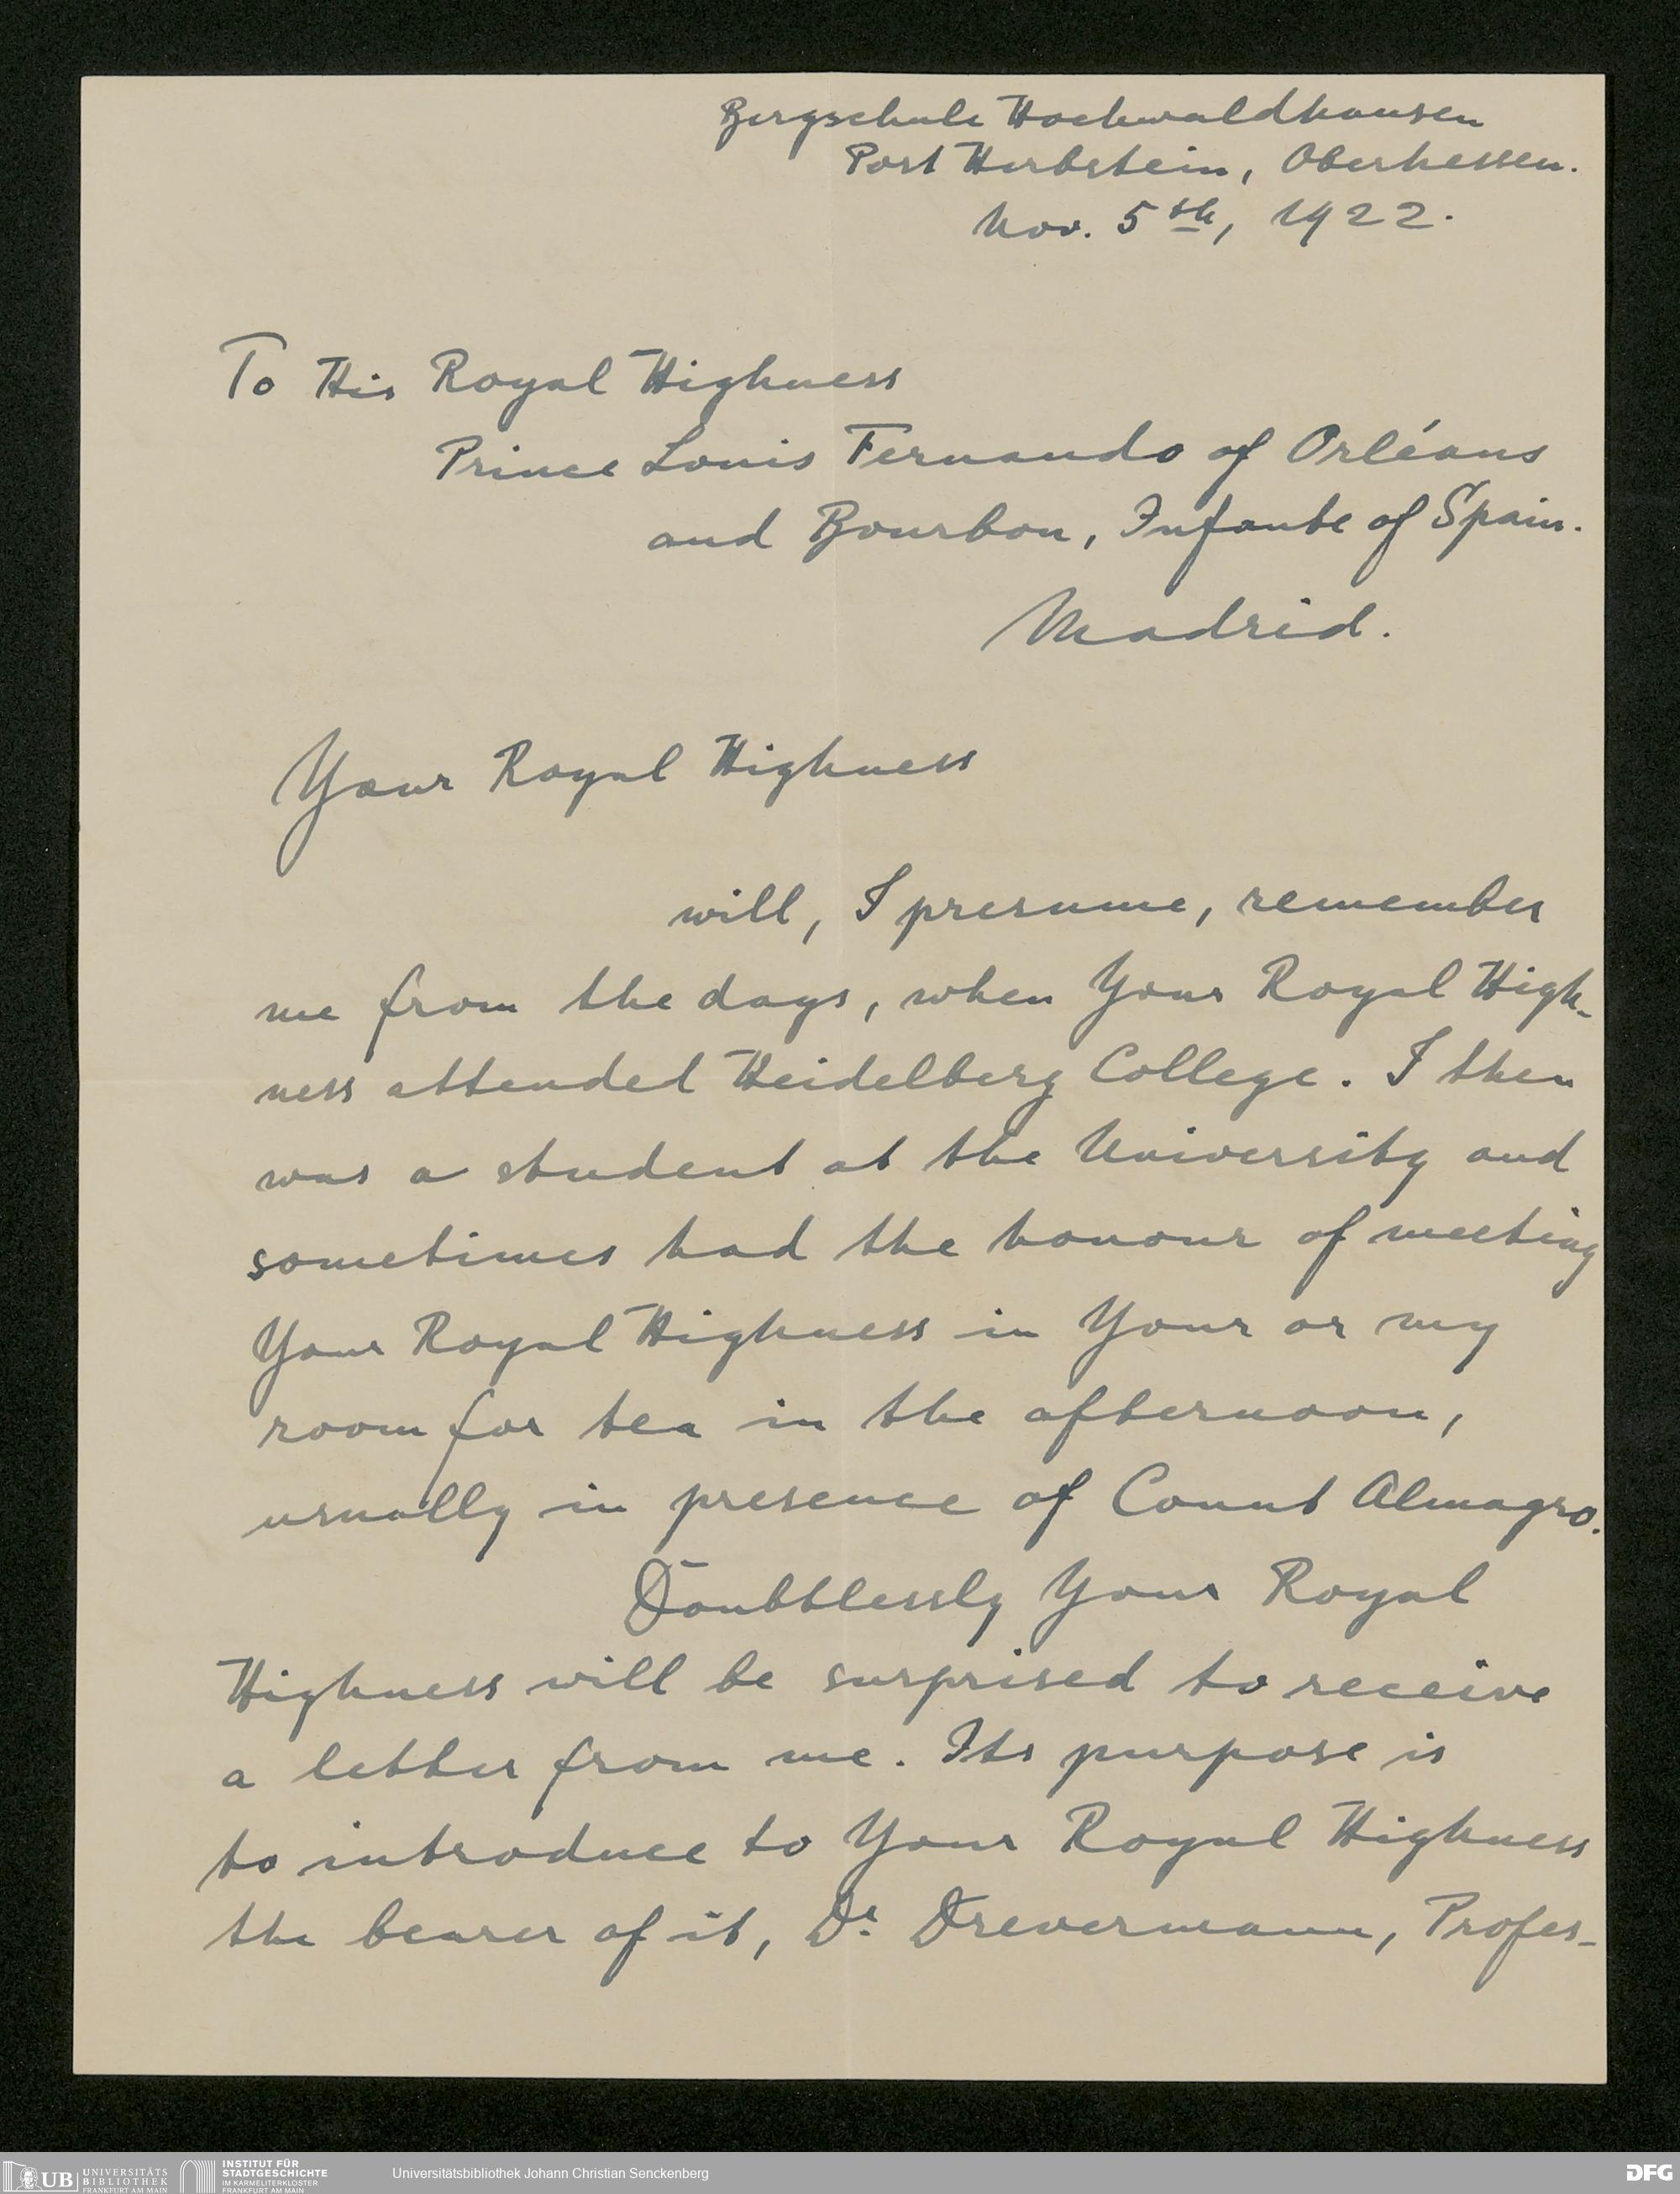 Bergschule Hochwaldhausen
Post Herbstein, Oberhessen.
Nov. 5th, 1922.
To His Royal Highness
Prince Louis Fernando of Orléans
and Bourbon, Infante of Spain.
Madrid.
Your Royal Highness
will, I presume, remember
me from the days, when Your Royal High-
ness attended Heidelberg College. I then
was a student at the University and
sometimes had the honour of meeting
Your Royal Highness in Your or my
room for tea in the afternoon,
usually in presence of Count Almagro.
Doubtlessly Your Royal
Highness will be surprised to receive
a letter from me. Its purpose is
to introduce to Your Royal Highness
the bearer of it, Dr. Drevermann, Profes-
UB UNIVERSITÄTS
BIBLIOTHEK
FRANKFURT AM MAIN
INSTITUT FÜR
STADTGESCHICHTE
IM KARMELITERKLOSTER
FRANKFURT AM MAIN
Universitätsbibliothek Johann Christian Senckenberg
DFG